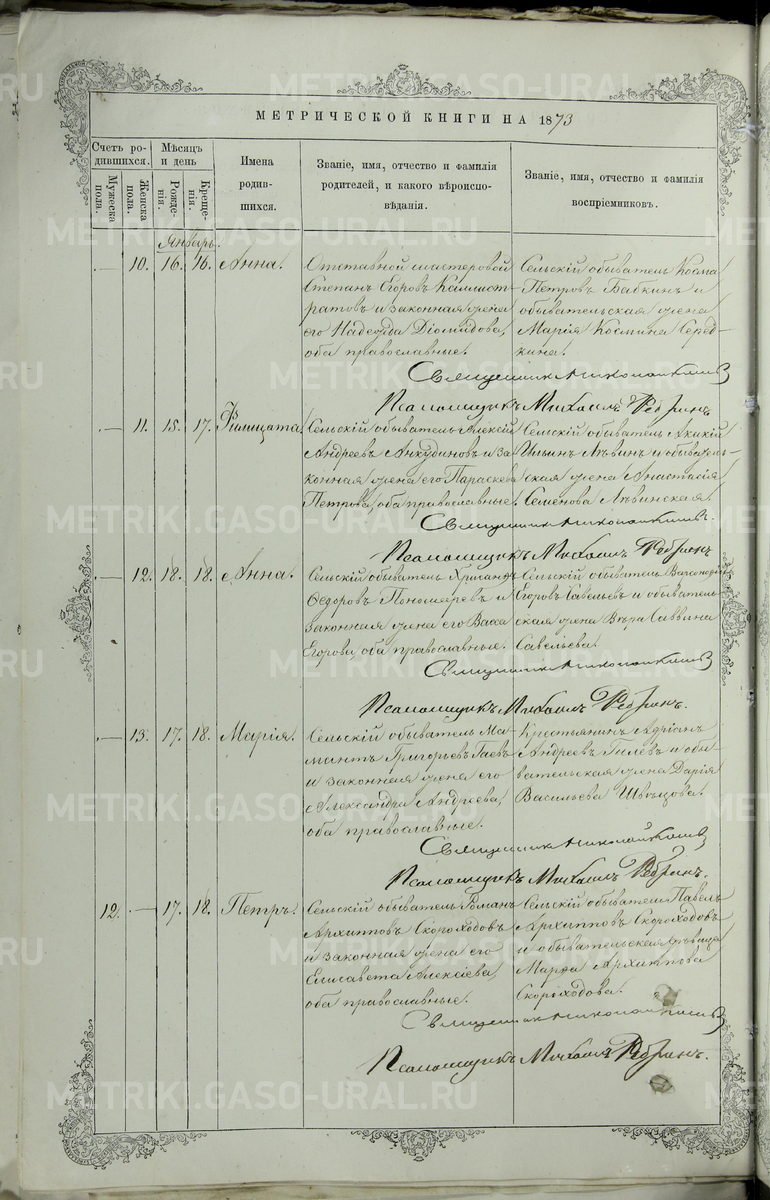 МЕТРИЧЕСКОЙ КНИГИ НА 1873
Счетъ ро-
дившихся.
Мужеска пола.
Женска пола.
Мѣсяцъ
и день
Рожде-
нія.
Креще-
нія.
Имена
родив-
шихся.
Званіе, имя, отчество и фамилія
родителей, и какого вѣроиспо-
вѣданія.
Званіе, имя, отчество и фамилія
воспріемниковъ.
Январь.
10. 16. 16. Анна.
Отставной мастеровой
Степанъ Егоровъ Калист-
ратовъ и законная жена
его Надежда Діомидова,
оба православные.
Сельскій обыватель Косма
Петровъ Бабкинъ и
обывательская жена
Марія Космина Серед-
кина.
Священникъ Николай
Псаломщикъ Михаилъ
11. 15. 17. Филицата.
Сельскій обыватель Алексій
Андреевъ Анкудиновъ и за-
конная жена его Параскева
Петрова, оба православные.
Сельскій обыватель Акакій
Ильинъ Лѣвинъ и обыватель-
ская жена Анастасія
Семенова Лѣвинская.
Священникъ Николай
Псаломщикъ Михаилъ
12. 18. 18. Анна.
Сельскій обыватель Хрисанфъ
Ѳедоровъ Пономаревъ и
законная жена его Васса
Егорова, оба православные.
Сельскій обыватель
Егоровъ Савельевъ и обыватель-
ская жена Вѣра Саввина
Савельева.
Священникъ Николай
Псаломщикъ Михаилъ
13. 17. 18. Марія.
Сельскій обыватель Ма-
мантъ Григорьевъ Гаевъ
и законная жена его
Александра Андреева,
оба православные.
Крестьянинъ Адріанъ
Андреевъ Гилевъ и обы-
вательская жена Дарія
Васильева Швецова.
Священникъ Николай
Псаломщикъ Михаилъ
12. 17. 18. Петръ.
Сельскій обыватель Романъ
Архипповъ Скороходовъ
и законная жена его
Елисавета Алексіева,
оба православные.
Сельскій обыватель Павелъ
Архипповъ Скороходовъ
и обывательская дѣвица
Марѳа Архиппова
Скороходова.
Священникъ Николай
Псаломщикъ Михаилъ
METRIKI.GASO-URAL.RU